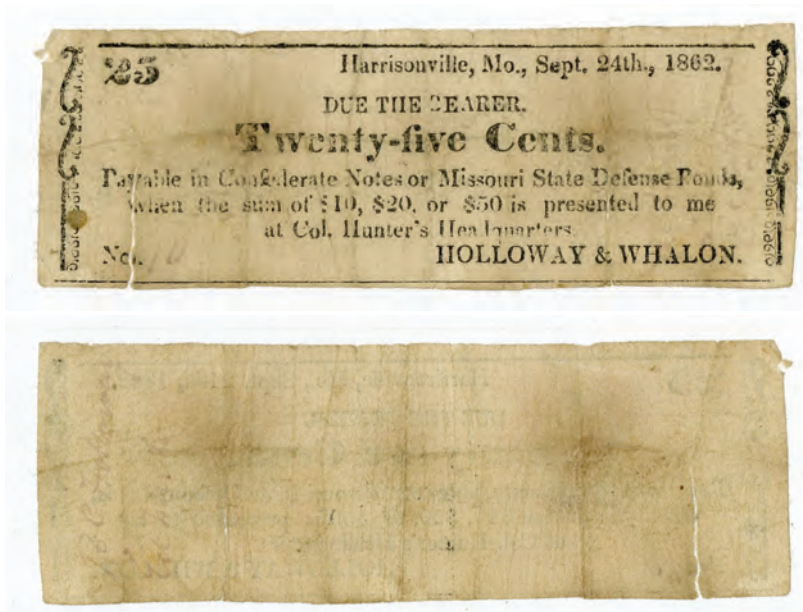 25
Harrisonville, Mo., Sept. 24th., 1862.
DUE THE BEARER.
Twenty-five Cents.
Payable in Confederate Notes or Missouri State Defense Bonds,
when the sum of $10, $20, or $50 is presented to me
at Col. Hunter's Headquarters
No. 10
HOLLOWAY & WHALON.